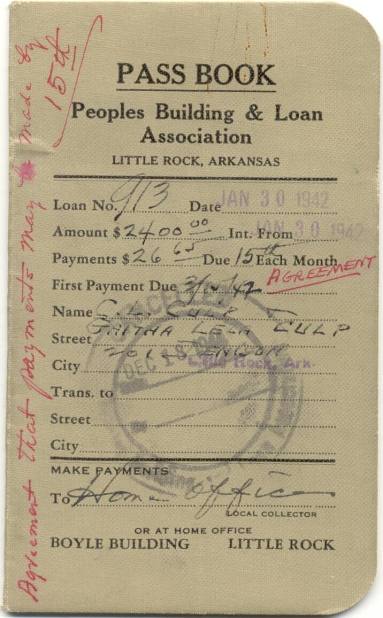 PASS BOOK
Peoples Building & Loan
Association
LITTLE ROCK, ARKANSAS
Loan No. 913 Date JAN 30 1942
Amount $ 2400 00 Int. From JAN 30 1942
Payments $ 26 Due 15th Each Month
AGREEMENT
First Payment Due
Name CULP &
LELA CULP
Street
City Little Rock, Ark.
Trans. to
Street
City
CANCELLED
DEC 18
MAKE PAYMENTS
To Home Office
LOCAL COLLECTOR
OR AT HOME OFFICE
BOYLE BUILDING LITTLE ROCK
Agreement that payments may be made by
15th